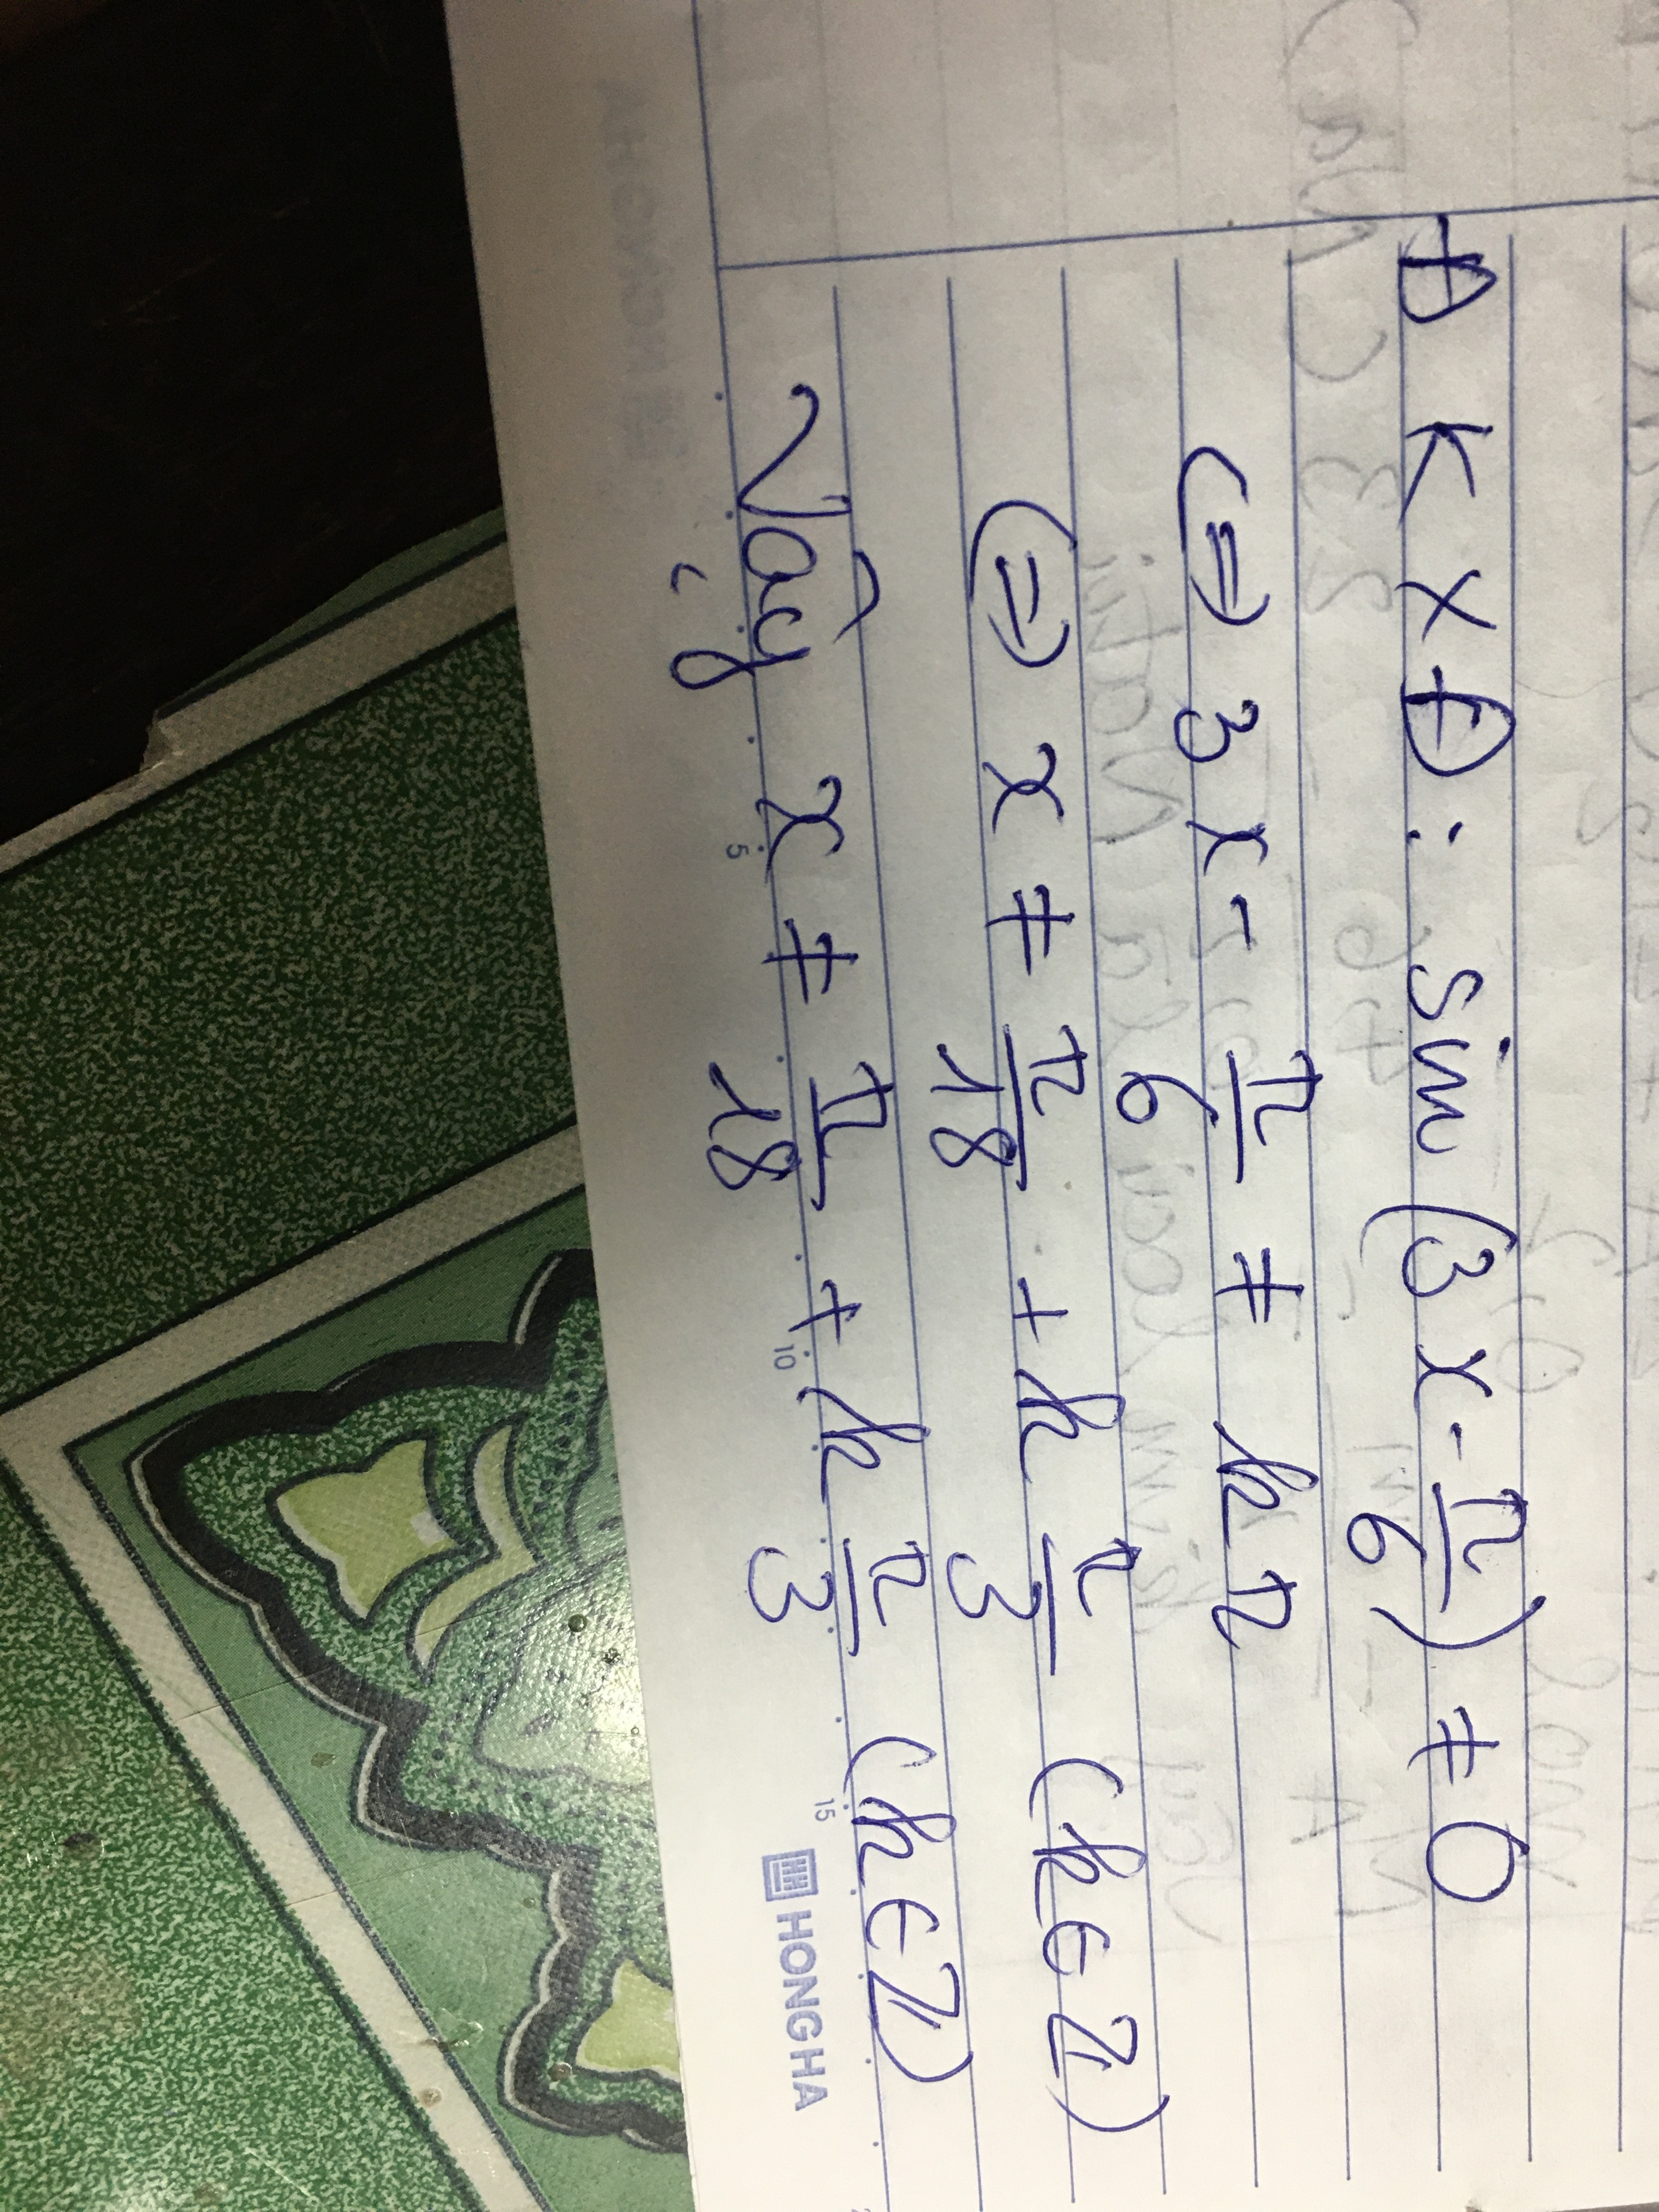 ĐKXĐ: sin (3x - π/6) ≠ 0
<=> 3x - π/6 ≠ kπ
<=> x ≠ π/18 + k π/3 (k ∈ Z)
Vậy x ≠ π/18 + k π/3 (k ∈ Z)
5 10 15
HONG HA